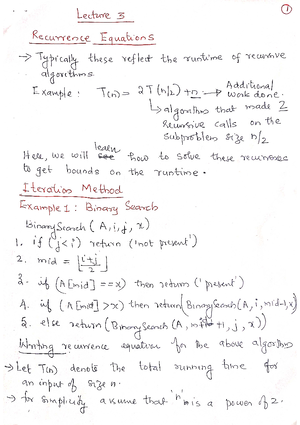 Lecture 3
1
Recurrence Equations
→ Typically these reflect the runtime of recursive
algorithms.
Example : T(n) = 2T(n/2) + n → Additional
work done.
↳ algorithm that made 2
Recursive calls on the
subproblem size n/2
Here, we will learn how to solve these recurrences
to get bounds on the runtime.
Iteration Method
Example 1 : Binary Search
BinarySearch (A, i, j, x)
1. if (j < i) return ('not present')
2. mid = ⌊(i+j)/2⌋
3. if (A[mid] == x) then return ('present')
4. if (A[mid] > x) then return (BinarySearch (A, i, mid-1, x)
5. else return (BinarySearch (A, mid+1, j, x))
Writing recurrence equation for the above algorithm
→ Let T(n) denote the total running time for
an input of size n.
→ for simplicity assume that 'n' is a power of 2.